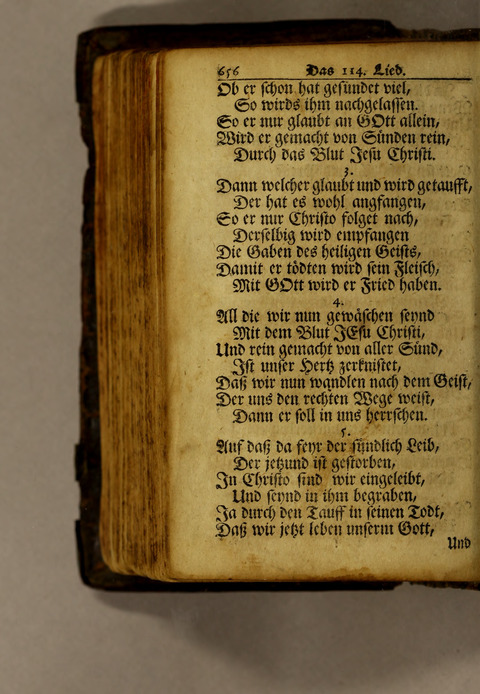 656 Das 114. Lied.
Ob er schon hat gesündet viel,
So wirds ihm nachgelassen.
So er nur glaubt an GOtt allein,
Wird er gemacht von Sünden rein,
Durch das Blut Jesu Christi.
3.
Dann welcher glaubt und wird getaufft,
Der hat es wohl angfangen,
So er nur Christo folget nach,
Derselbig wird empfangen
Die Gaben des heiligen Geists,
Damit er tödten wird sein Fleisch,
Mit GOtt wird er Fried haben.
4.
All die wir nun gewäschen seynd
Mit dem Blut JEsu Christi,
Und rein gemacht von aller Sünd,
Ist unser Hertz zerknistet,
Daß wir nun wandlen nach dem Geist,
Der uns den rechten Wege weist,
Dann er soll in uns herrschen.
5.
Auf daß da feyr der sündlich Leib,
Der jetzund ist gestorben,
In Christo sind wir eingeleibt,
Und seynd in ihm begraben,
Ja durch den Tauff in seinen Todt,
Daß wir jetzt leben unserm Gott,
Und